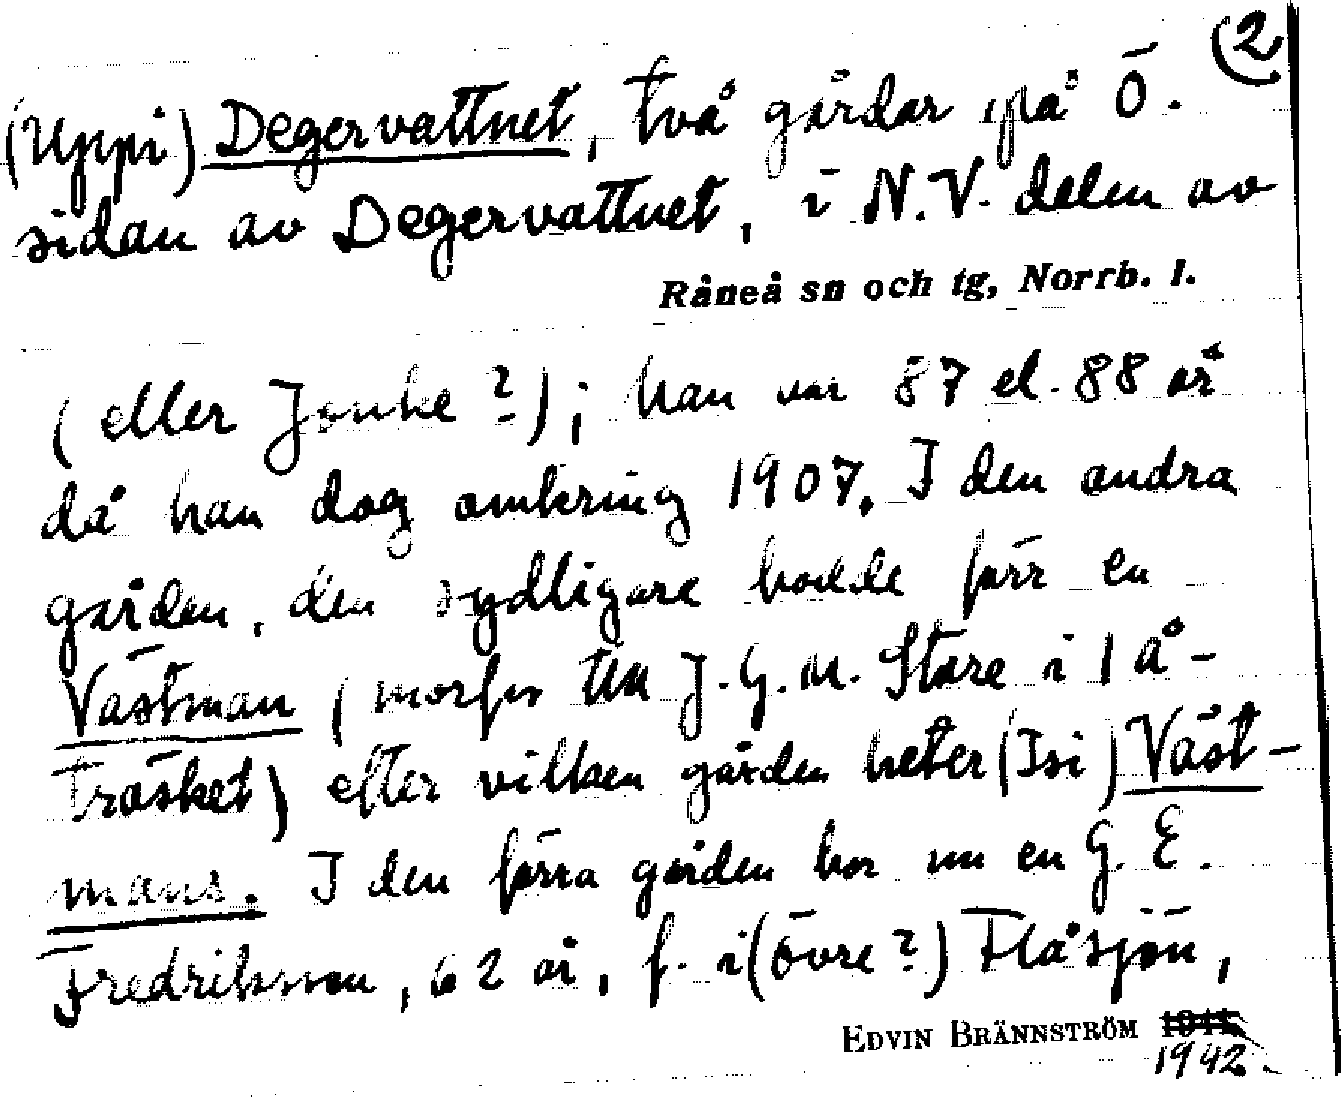 (2
(Uppi) Degervattnet, två gårdar på Ö.
sidan av Degervattnet, i N.V. delen av
Råneå sn och tg, Norrb. l.
(eller Jonke?); han var 87 el. 88 år
då han dog omkring 1907. I den andra
gården, den sydligare bodde förr en
Västman (morfar till J.G.M. Stare i l å-
träsket) efter vilken gården heter (Isi) Väst-
mans. I den förra gården bor nu en G. E.
Fredriksson, 62 år, f. i (övre?) Flåsjön,
EDVIN BRÄNNSTRÖM
1942.